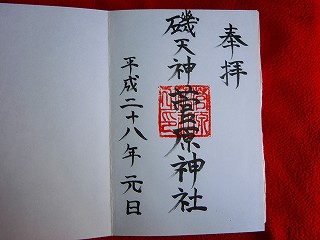 奉拝
磯天神 菅原神社
平成二十八年元日